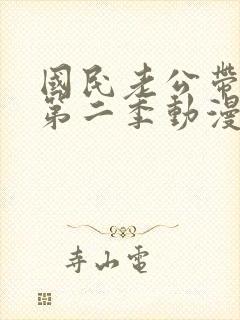 國民老公帶
第二季動漫
寺山電